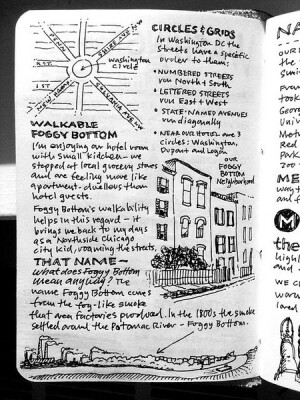 PENN
NEW HAMPSHIRE AVE
K ST.
I ST
Washington
Circle
CIRCLES & GRIDS
In Washington DC the
streets have a specific
order to them:
• NUMBERED STREETS
run North & South
• LETTERED STREETS
run East & West
• STATE-NAMED AVENUES
run diagonally
• NEAR OUR HOTEL are 3
circles: Washington,
Dupont and Logan
OUR
FOGGY
BOTTOM
Neighborhood
WALKABLE
FOGGY BOTTOM
I'm enjoying our hotel room
with small kitchen — we
stopped at local grocery stores
and are feeling more like
apartment-dwellers than
hotel guests.
Foggy Bottom's walkability
helps in this regard — it
brings me back to my days
as a Northside Chicago
city kid, roaming the streets.
THAT NAME~
What does Foggy Bottom
mean anyway? The
name Foggy Bottom comes
from the fog-like smoke
that area factories produced. In the 1800s the smoke
settled around the Potomac River – Foggy Bottom.
NA
OUR
the
M